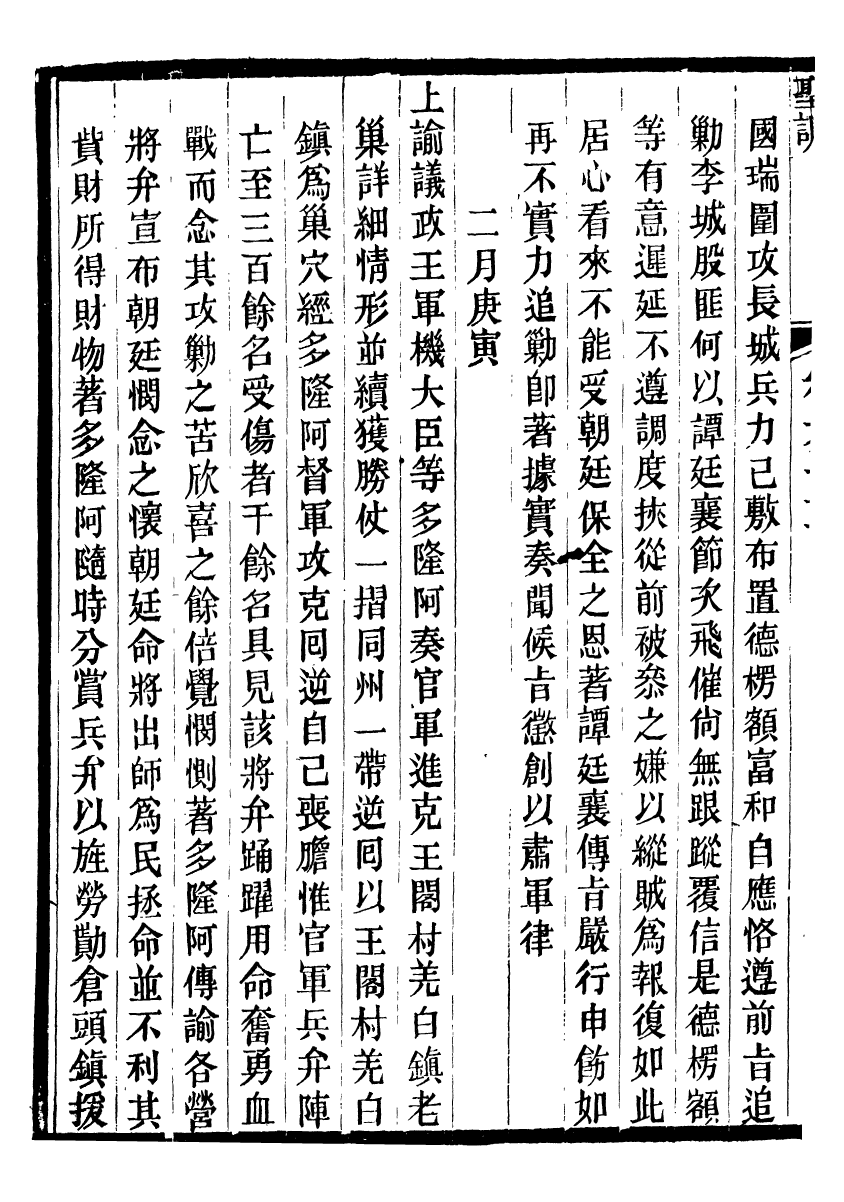 聖訓
國瑞圍攻長城兵力已敷布置德楞額富和自應恪遵前㫖追
勦李城股匪何以譚廷襄節次飛催尙無跟蹤覆信是德楞額
等有意遲延不遵調度挾從前被叅之嫌以縱賊爲報復如此
居心看來不能受朝廷保全之恩著譚廷襄傳㫖嚴行申飭如
再不實力追勦卽著據實奏聞候㫖懲創以肅軍律
二月庚寅
上諭議政王軍機大臣等多隆阿奏官軍進克王閣村羌白鎭老
巢詳細情形並續獲勝仗一摺同州一帶逆囘以王閣村羌白
鎭爲巢穴經多隆阿督軍攻克囘逆自已喪膽惟官軍兵弁陣
亡至三百餘名受傷者千餘名具見該將弁踊躍用命奮勇血
戰而念其攻勦之苦欣喜之餘倍覺憫惻著多隆阿傳諭各營
將弁宣布朝廷憫念之懷朝廷命將出師爲民拯命並不利其
貲財所得財物著多隆阿隨時分賞兵弁以旌勞勩倉頭鎭援